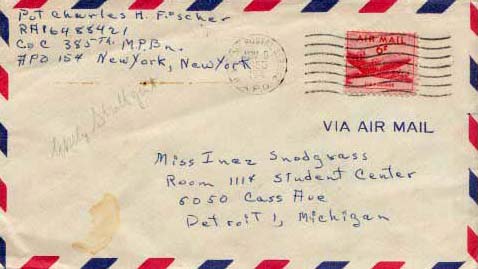 Pvt Charles H. Fischer
RA16488421
Co C 385th M.P.Bn.
APO 154 New York, New York
AIR MAIL
6¢
VIA AIR MAIL
Miss Inez Snodgrass
Room 1114 Student Center
5050 Cass Ave
Detroit 1, Michigan